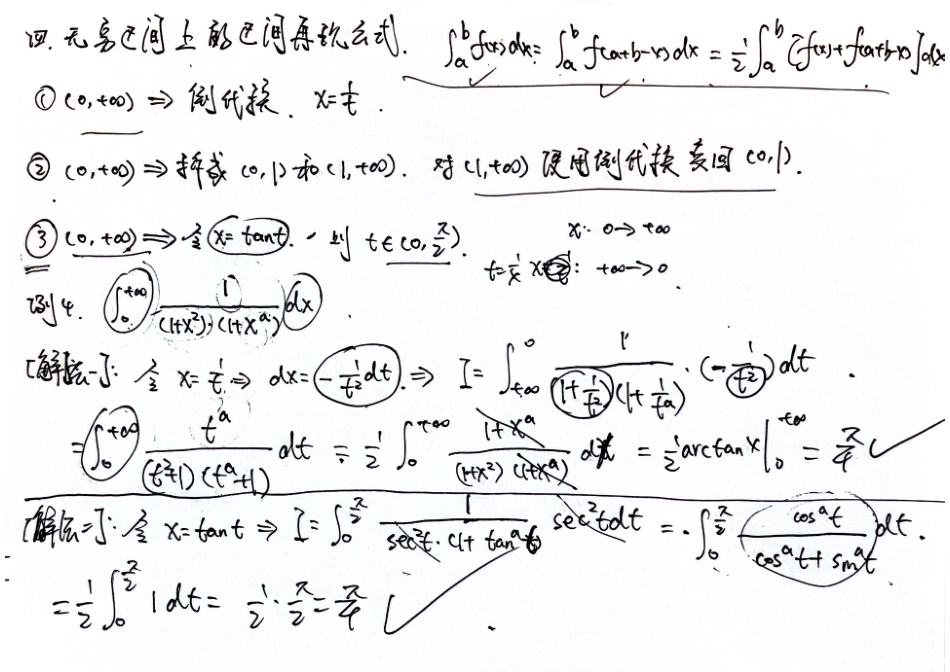 四. 无穷区间上的区间再现公式. ∫_a^b f(x)dx = ∫_a^b f(a+b-x)dx = 1/2 ∫_a^b [f(x)+f(a+b-x)]dx
① (0,+∞) ⇒ 倒代换. x=1/t.
② (0,+∞) ⇒ 拆成 (0,1) 和 (1,+∞). 对 (1,+∞) 使用倒代换变回 (0,1).
③ (0,+∞) ⇒ 令 x=tant. 则 t∈(0,π/2). x: 0→+∞
t=1/x : +∞→0
例4. ∫_0^{+∞} 1/((1+x²)·(1+x^a)) dx
[解法一]: 令 x=1/t ⇒ dx=-1/t² dt. ⇒ I= ∫_{+∞}^0 1/((1+1/t²)(1+1/t^a)) · (-1/t²) dt
= ∫_0^{+∞} t^a/((t²+1)(t^a+1)) dt = 1/2 ∫_0^{+∞} (1+x^a)/((1+x²)(1+x^a)) dx = 1/2 arctanx |_0^{+∞} = π/4
[解法二]: 令 x=tant ⇒ I= ∫_0^{π/2} 1/(sec²t·(1+tan^a t)) sec²t dt = ∫_0^{π/2} cos^a t/(cos^a t+sin^a t) dt.
= 1/2 ∫_0^{π/2} 1 dt = 1/2 · π/2 = π/4